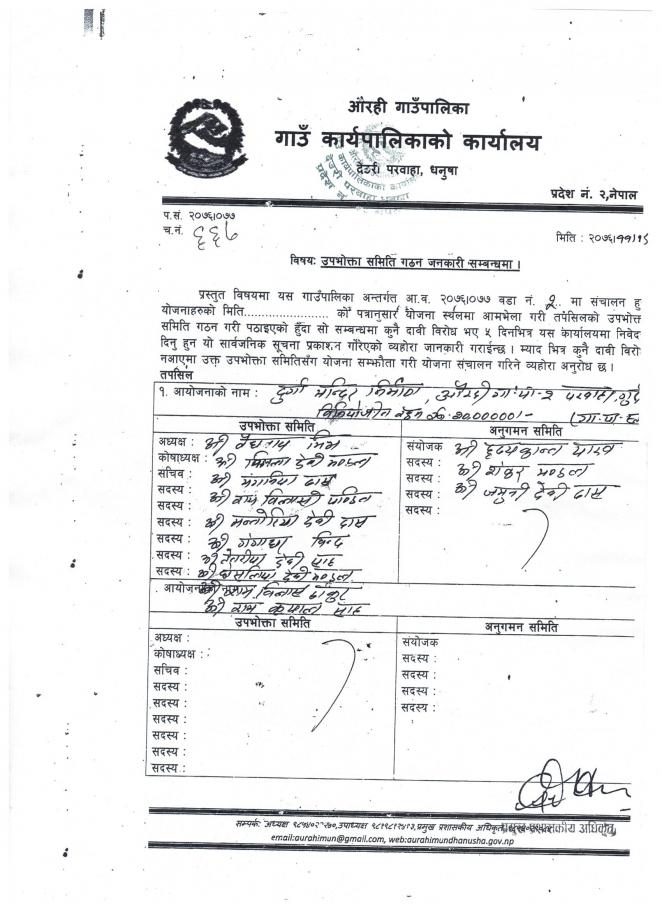 औरही गाउँपालिका
गाउँ कार्यपालिकाको कार्यालय
देउरी परवाहा, धनुषा
प्रदेश नं. २,नेपाल
प.सं. २०७६।०७७
च.नं. ६६७
मिति : २०७६।११।१६
विषय: उपभोक्ता समिति गठन जानकारी सम्बन्धमा ।
प्रस्तुत विषयमा यस गाउँपालिका अन्तर्गत आ.व. २०७६।०७७ वडा नं. २ मा संचालन हु
योजनाहरुको मिति........................ को पत्रानुसार योजना स्थलमा आमभेला गरी तपसिलको उपभोक्त
समिति गठन गरी पठाइएको हुँदा सो सम्बन्धमा कुनै दावी विरोध भए ५ दिनभित्र यस कार्यालयमा निवेद
दिनु हुन यो सार्वजनिक सूचना प्रकाशन गरिएको व्यहोरा जानकारी गराईन्छ । म्याद भित्र कुनै दावी विरो
नआएमा उक्त उपभोक्ता समितिसँग योजना सम्झौता गरी योजना संचालन गरिने व्यहोरा अनुरोध छ।
तपसिल
१. आयोजनाको नाम : दुर्गा मन्दिर निर्माण, औरही गा.पा-२
उपभोक्ता समिति अनुगमन समिति
अध्यक्ष : श्री
कोषाध्यक्ष : श्री मिथिला देवी मण्डल
सचिव : श्री दास
सदस्य : श्री राम विलास पण्डित
सदस्य : श्री देवी दास
सदस्य : श्री गंगाधर बिन्द
सदस्य : श्री देवी साह
सदस्य : श्री देवी मण्डल
संयोजक श्री हृदयकान्त यादव
सदस्य : श्री शंकर मण्डल
सदस्य : श्री जमुनी देवी दास
सदस्य :
आयोजना श्री राम विलास ठाकुर
श्री राम कृपाल साह
उपभोक्ता समिति अनुगमन समिति
अध्यक्ष :
कोषाध्यक्ष :
सचिव :
सदस्य :
सदस्य :
सदस्य :
सदस्य :
सदस्य :
सदस्य :
संयोजक
सदस्य :
सदस्य :
सदस्य :
सदस्य :
सम्पर्क: अध्यक्ष उपाध्यक्ष प्रमुख प्रशासकीय अधिकृत
email:aurahimun@gmail.com, web:aurahimundhanusha.gov.np